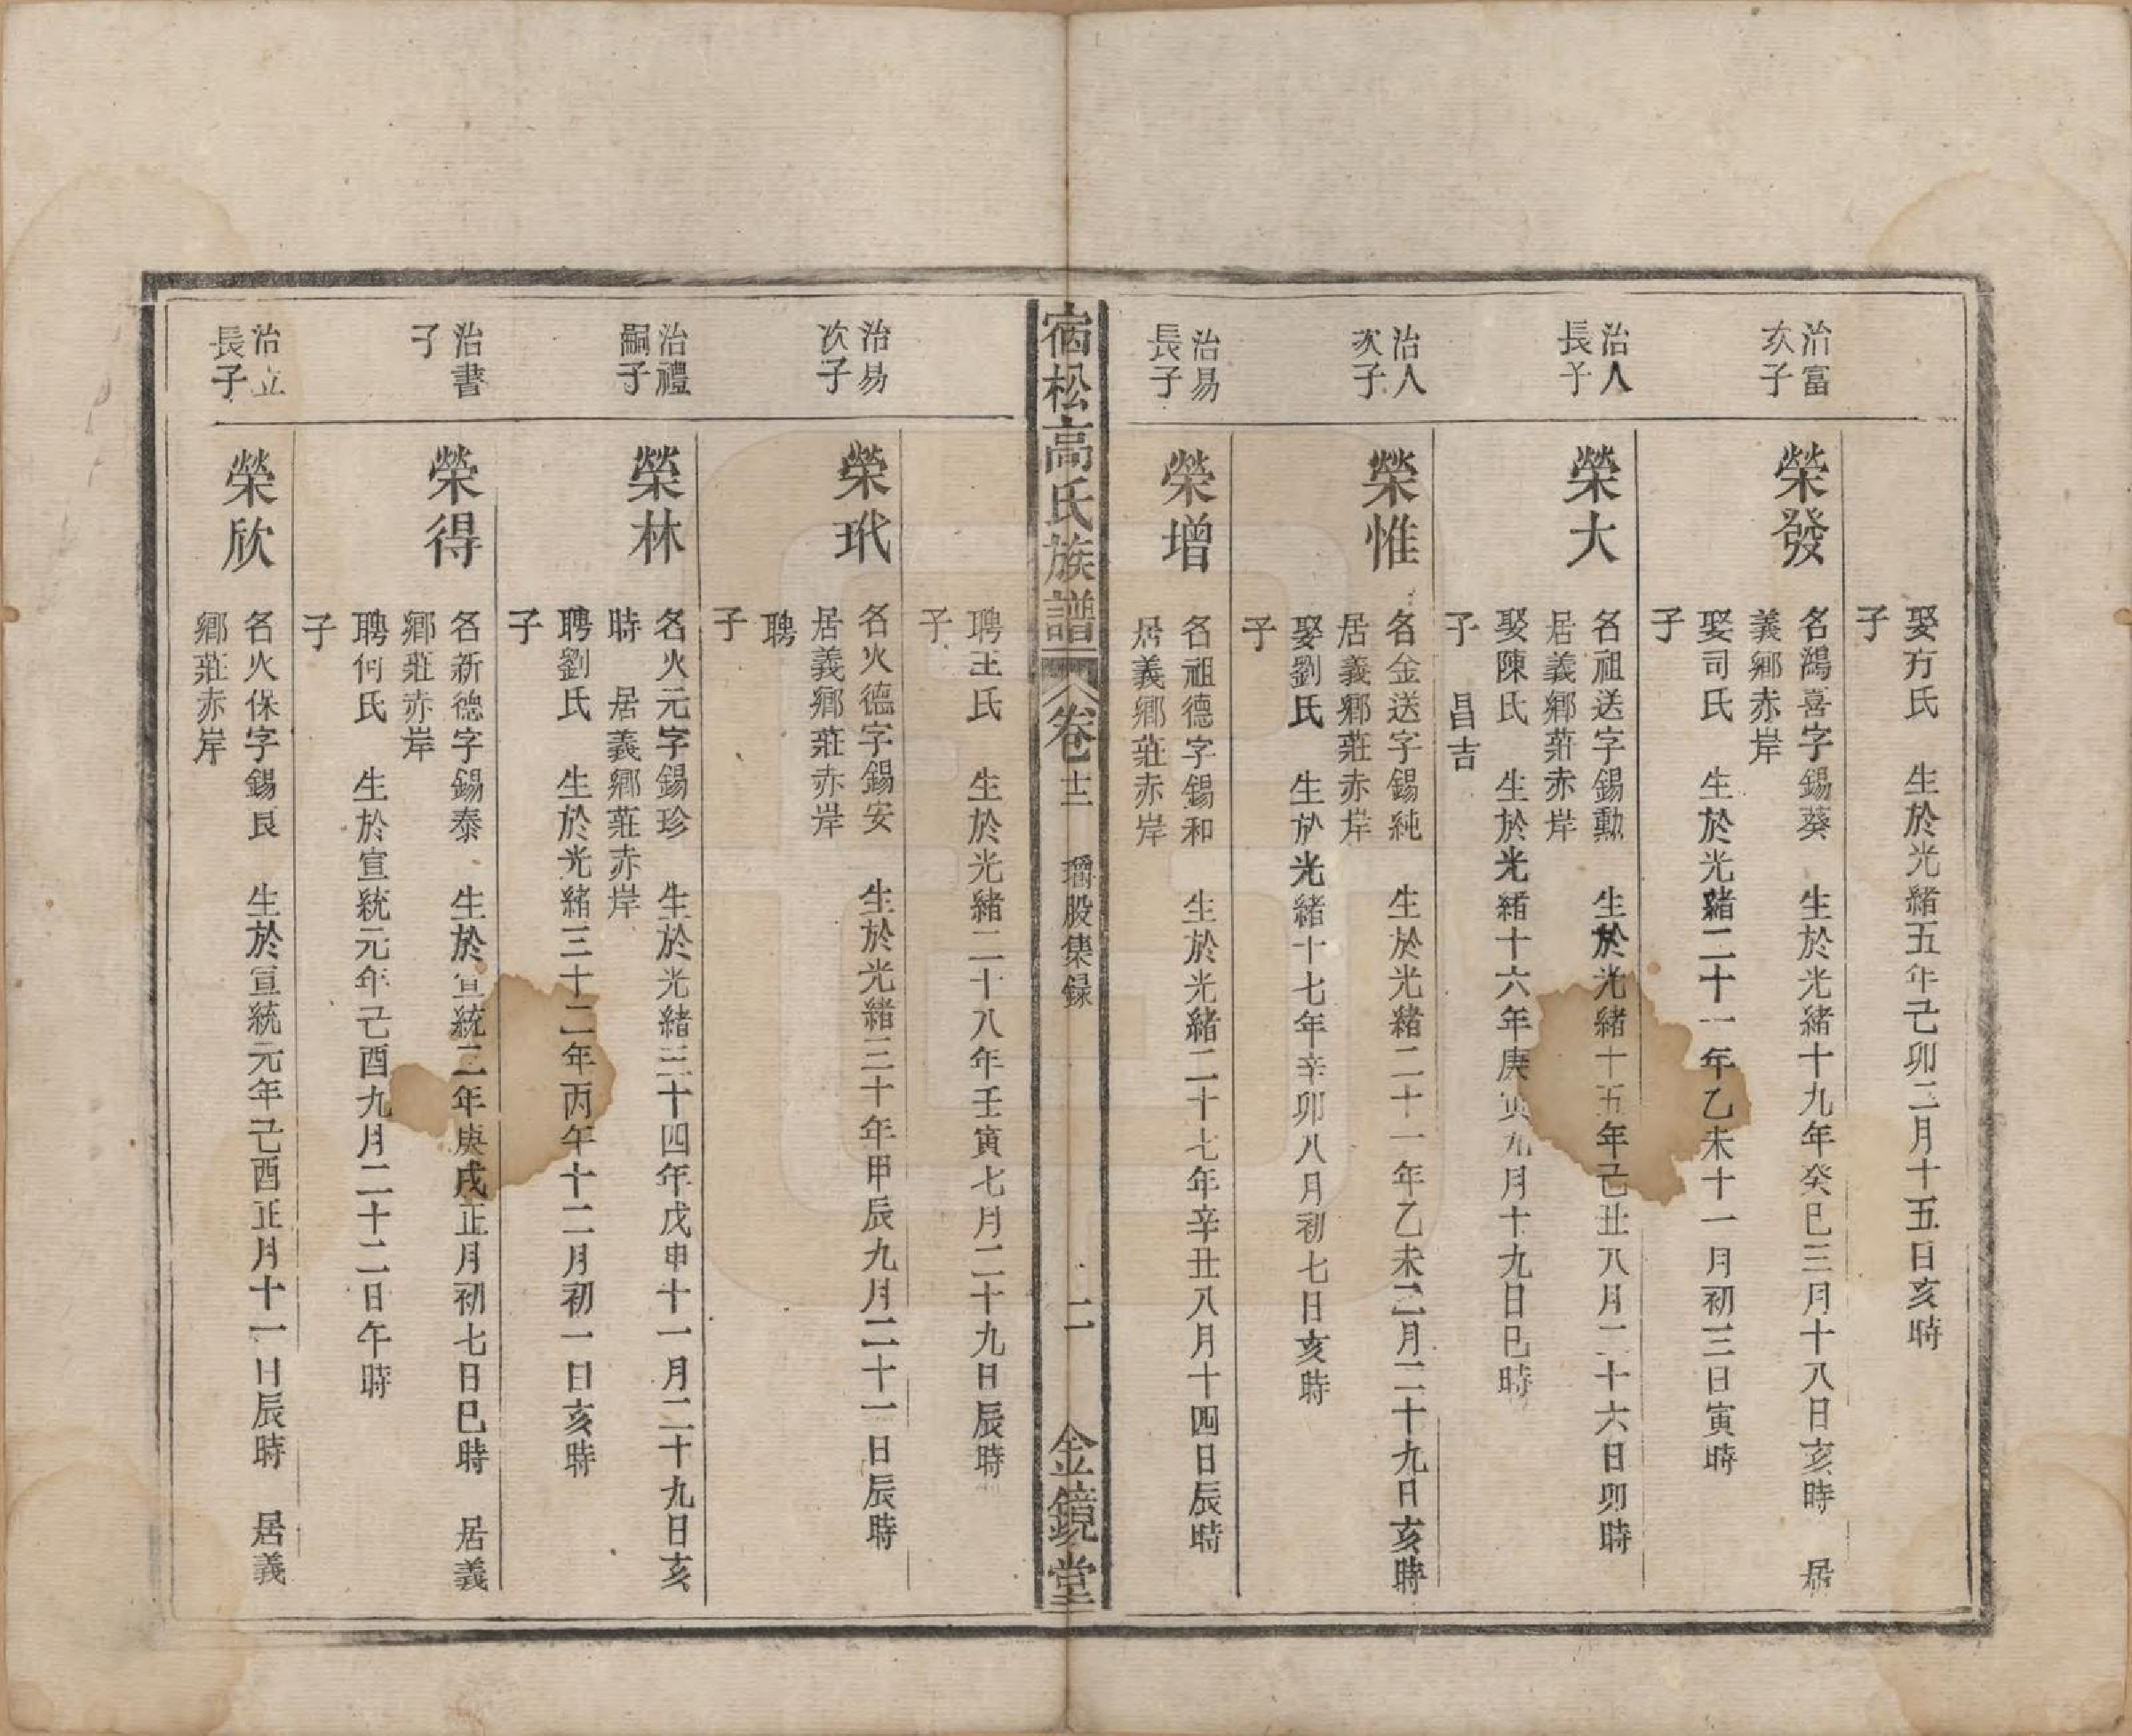 娶方氏　生於光緒五年己卯二月十五日亥時
子
治富
次子
榮發
名鴻喜字錫葵　生於光緒十九年癸巳三月十八日亥時　居
義鄉赤岸
娶司氏　生於光緒二十一年乙未十一月初三日寅時
子
治人
長子
榮大
名祖送字錫勳　生於光緒十五年己丑八月二十六日卯時
居義鄉莊赤岸
娶陳氏　生於光緒十六年庚寅九月十九日巳時
子　昌吉
治人
次子
榮惟
名金送字錫純　生於光緒二十一年乙未二月二十九日亥時
居義鄉莊赤岸
娶劉氏　生於光緒十七年辛卯八月初七日亥時
子
治易
長子
榮增
名祖德字錫和　生於光緒二十七年辛丑八月十四日辰時
居義鄉莊赤岸
宿松高氏族譜　卷十二　瑠股集録　二　金鏡堂
聘王氏　生於光緒二十八年壬寅七月二十九日辰時
子
治易
次子
榮玳
名火德字錫安　生於光緒三十年甲辰九月二十一日辰時
居義鄉莊赤岸
聘
子
治禮
嗣子
榮林
名火元字錫珍　生於光緒三十四年戊申十一月二十九日亥
時　居義鄉莊赤岸
聘劉氏　生於光緒三十二年丙午十二月初一日亥時
子
治書
子
榮得
名新德字錫泰　生於宣統二年庚戌正月初七日巳時　居義
鄉莊赤岸
聘何氏　生於宣統元年己酉九月二十二日午時
子
治立
長子
榮欣
名火保字錫良　生於宣統元年己酉正月十一日辰時　居義
鄉莊赤岸